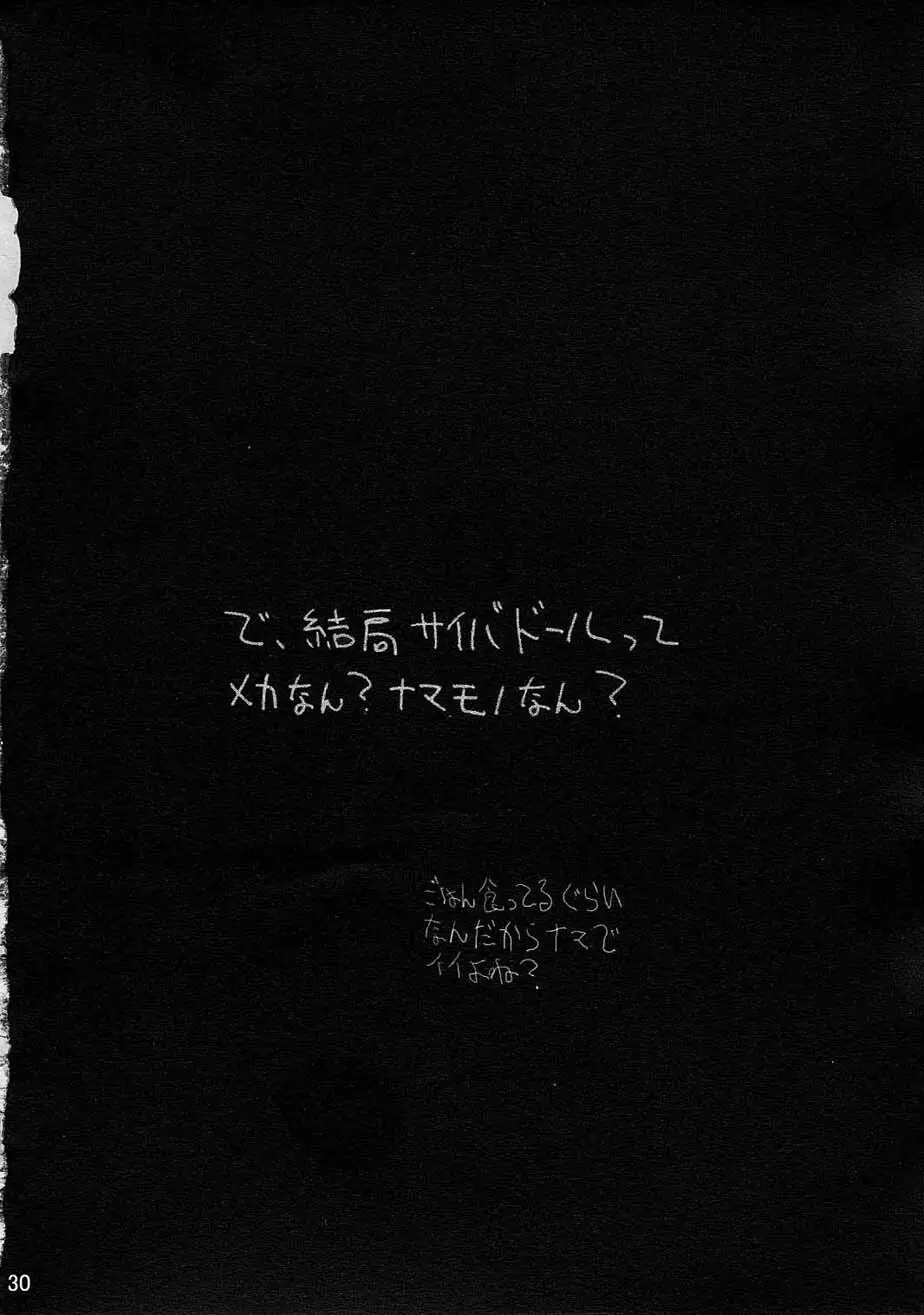 で、結局サイバドールって
メカなん？ナマモノなん？
ごはん食ってるぐらい
なんだからナマで
イイよね？
30